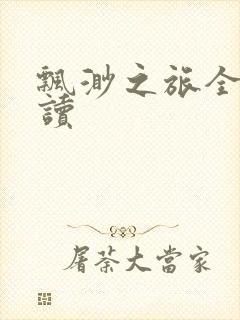 飄渺之旅全
讀
屠荼大當家